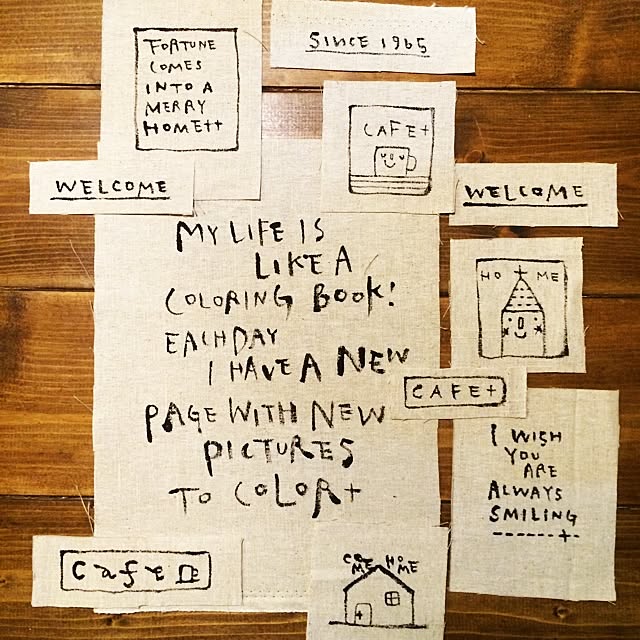 FORTUNE
COMES
INTO A
MERRY
HOME++
SINCE 1965
CAFE+
WELCOME
WELCOME
MY LIFE IS
LIKE A
COLORING BOOK!
EACH DAY
I HAVE A NEW
PAGE WITH NEW
PICTURES
TO COLOR+
HO ME
CAFE+
I WISH
YOU
ARE
ALWAYS
SMILING
Cafe
HOME